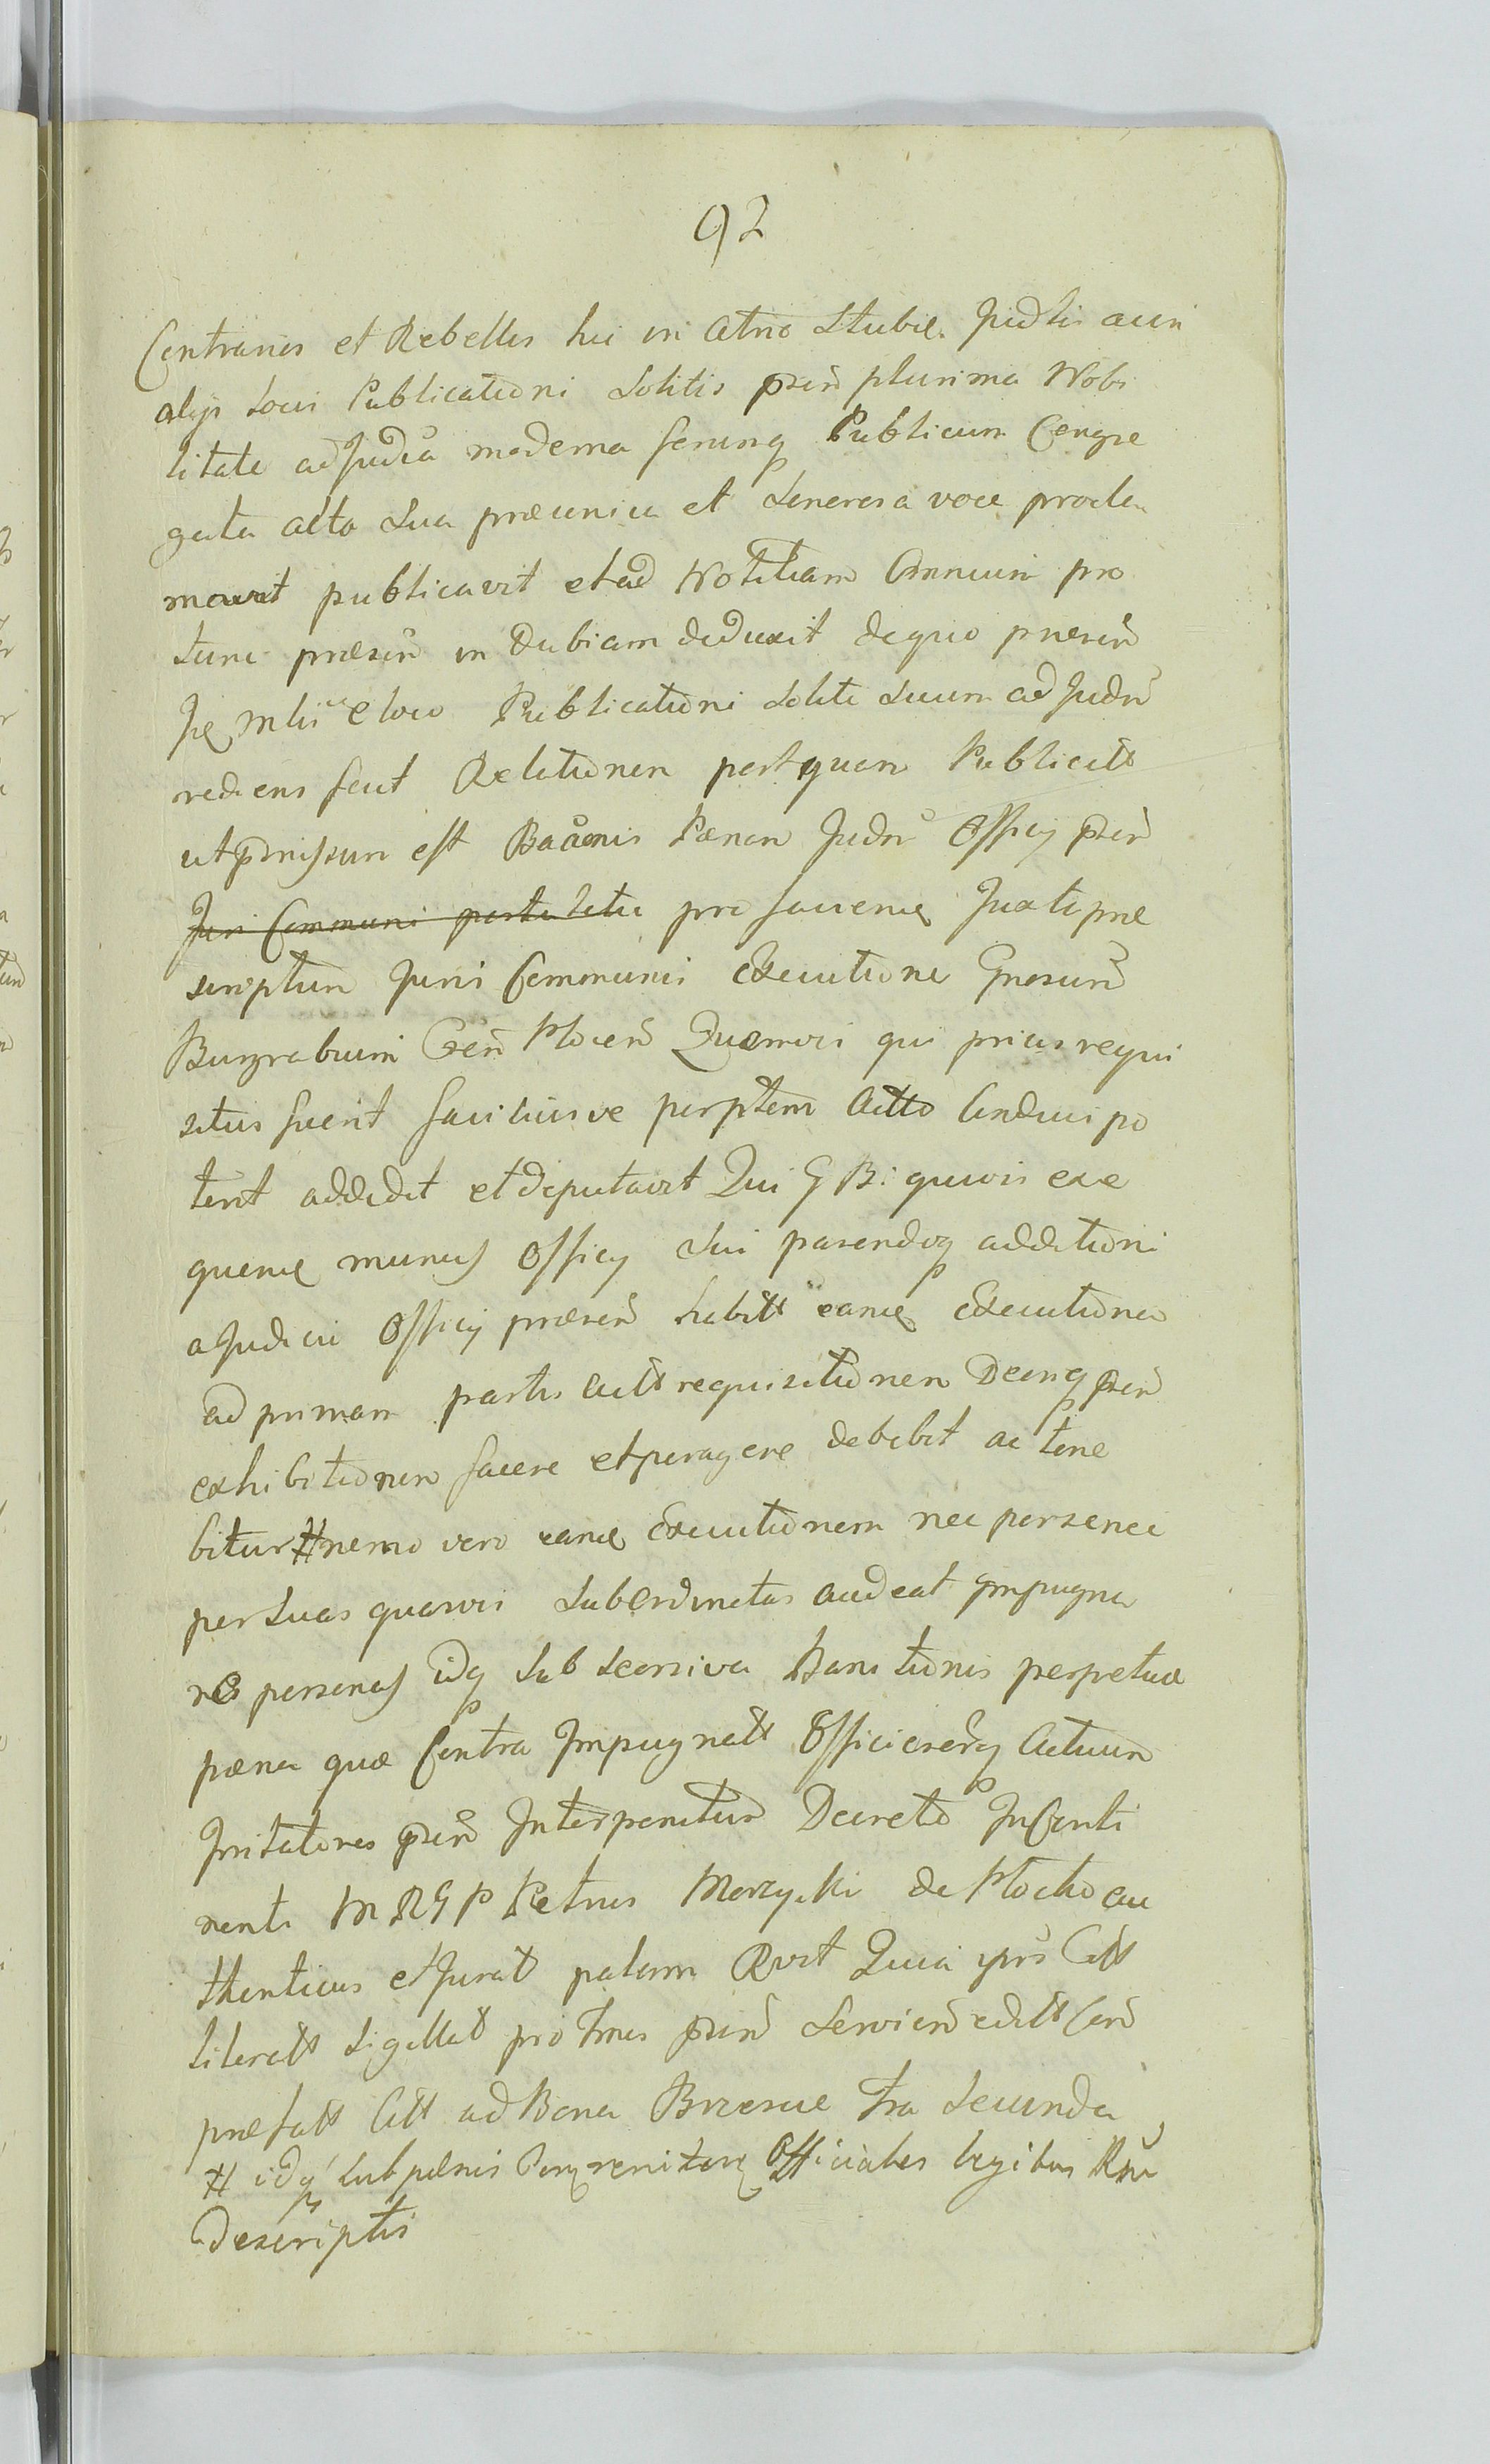 92
Contrarios et Rebelles hic in Atrio Stubæ Judlis acin
alijs Locis Publicationi Solitis pñn plurima Nobi
litate ad Judia moderna ferinq Publicum Congre
gata alta Sua præconica et Sonorosa voce procla
mavit publicavit et ad Notitiam Omnium pro
tunc præsen in Dubiam deduxit de quo præsen
Mlii e loco Publicationi Solito Suum ad Judm
rediens fecit Relationem postquam Publicatt
ut pmissum est Bacönis Pænam Judm Officij præn
Juri Communi postulata pro facienda Juxta præ
scriptum Juris Communis Executione Gnosum
Burgrabium Cren Plocen Quemvis qui prius requi
situs fuerit faciliusve per ptem Actto Conduci po
terit addidit et deputavit Qui G B: quivis exe
quens munus Officij Sui parendoq additioni
a Judicii Officij præsen habitt eanq Executionem
ad primam partis Actt requisitionem Decriq præn
exhibitionem facere et peragere debebit ac tene
bitur # nemo vero eanq Executionem nec per se nec
per Suas quasvis Subordinatas audeat Impugna
re personas idq Sub Seorsiva Banitionis perpetuæ
pæna quæ Contra Impugnatt Officiorumq Actuum
Irritatores præn Interponitur Decreto In Conti
nenti M R G P Petrus Morzycki de Plocko au
thenticus et Juratt palam Rvit Quia ipse Citt
literatt Sigillatt pro Tmis præn Servien edditt Con
præfatt Citt ad Bona Brzescie fra Secunda
# idq Sub pænis Conq renitores Officiales legibus Rni
Descriptis